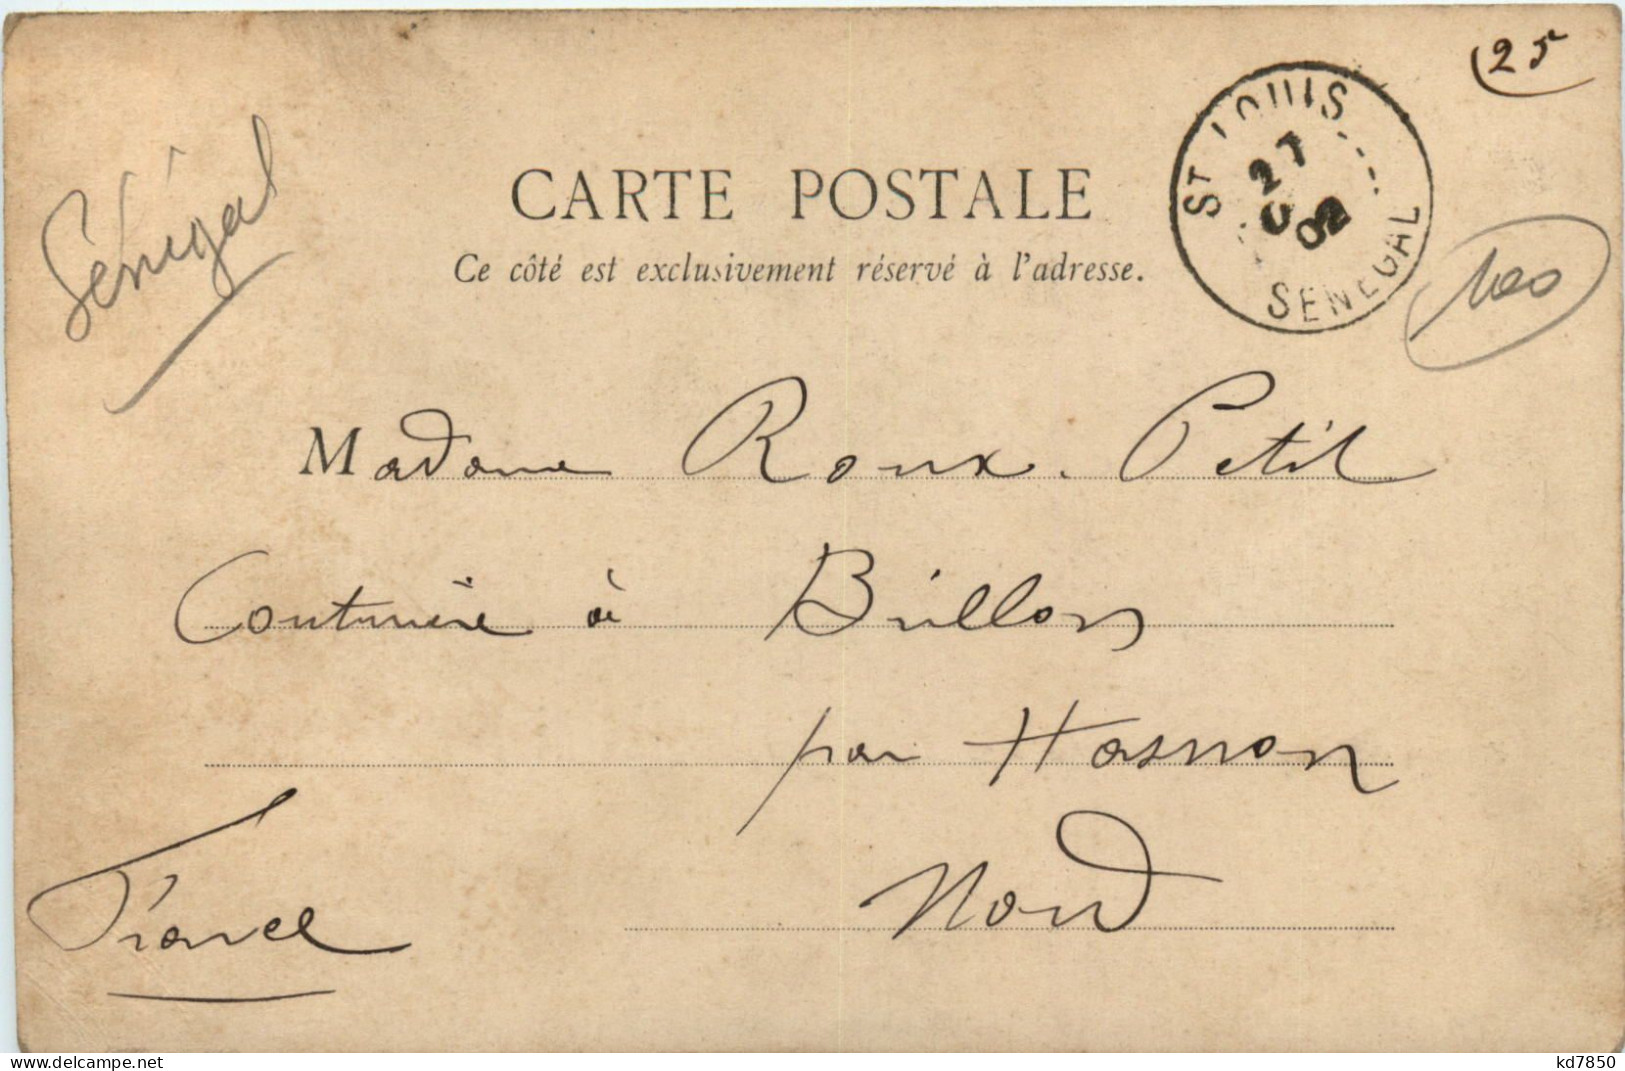 25
ST LOUIS
27
02
SENEGAL
Sénégal
CARTE POSTALE
Ce côté est exclusivement réservé à l'adresse.
100
Madame Roux-Petit
Couturière à Brillon
par Hasnon
Nord
France
https://www.delcampe.net
kd7850